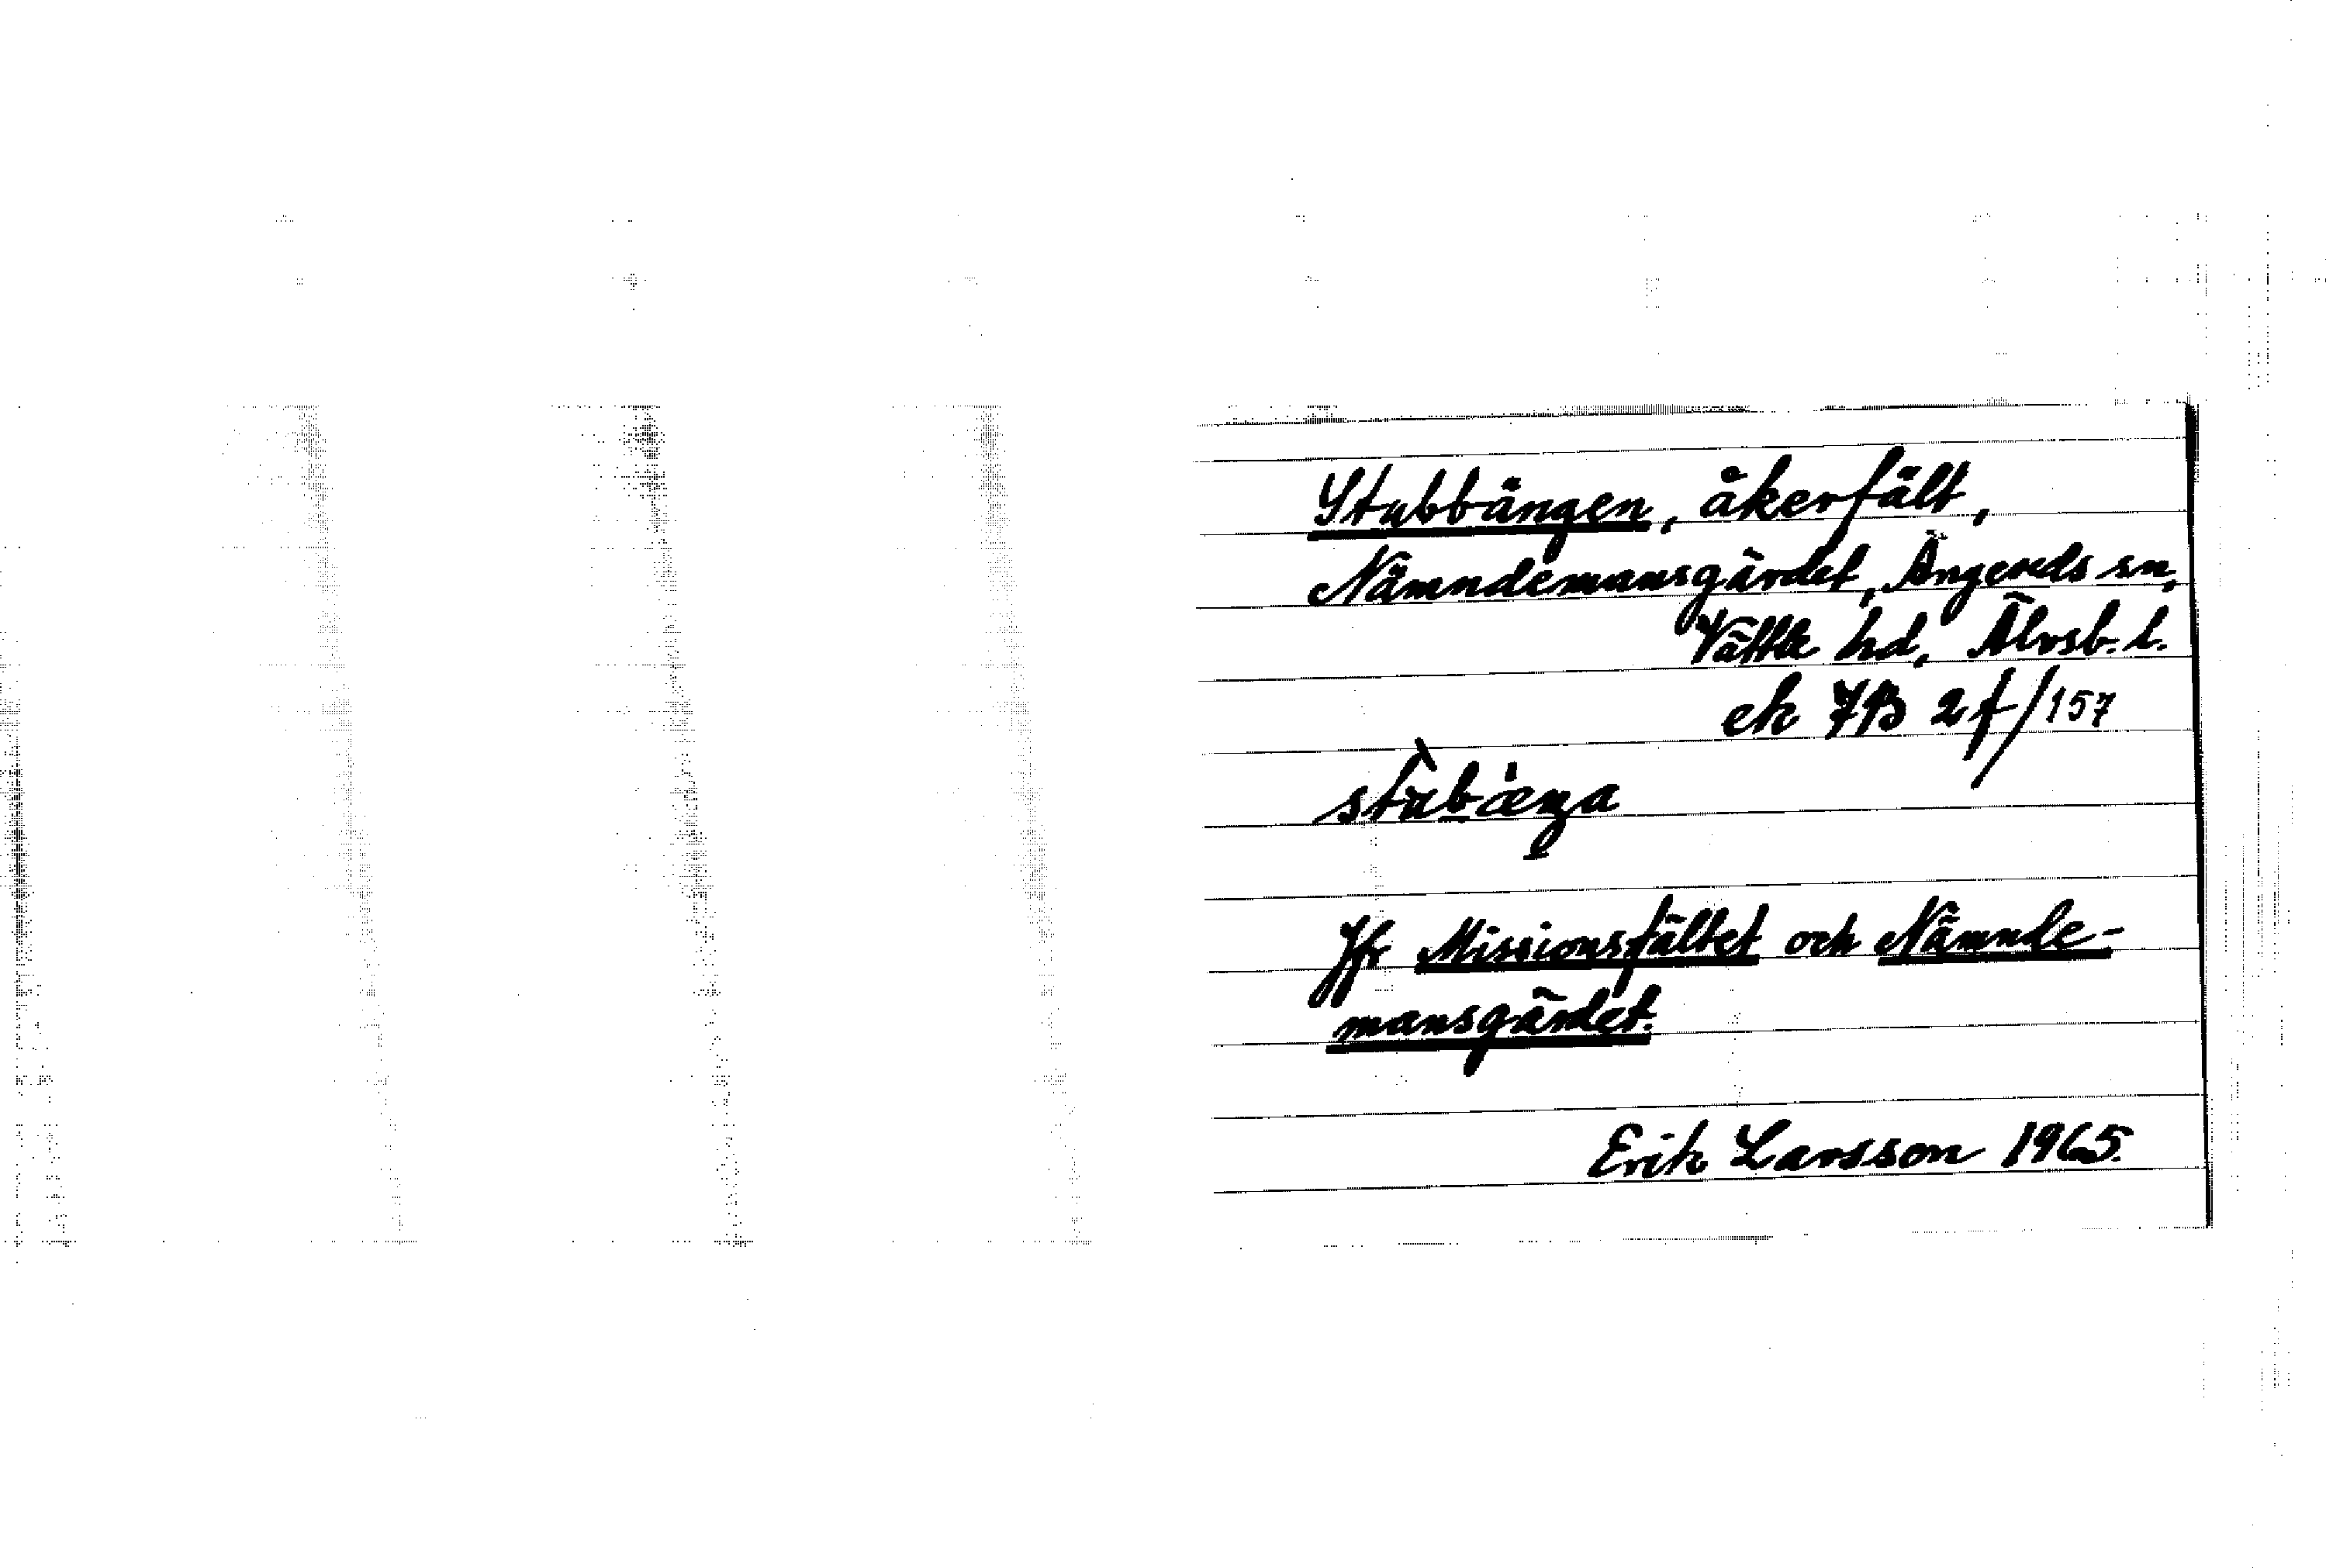 Stubbängen, åkerfält,
Nämndemansgärdet, Ängereds sn,
Vättle hd, Älvsb. l.
ek 7B 2f/157
Jfr Missionsfältet och Nämnde-
mansgärdet.
Erik Larsson 1965.